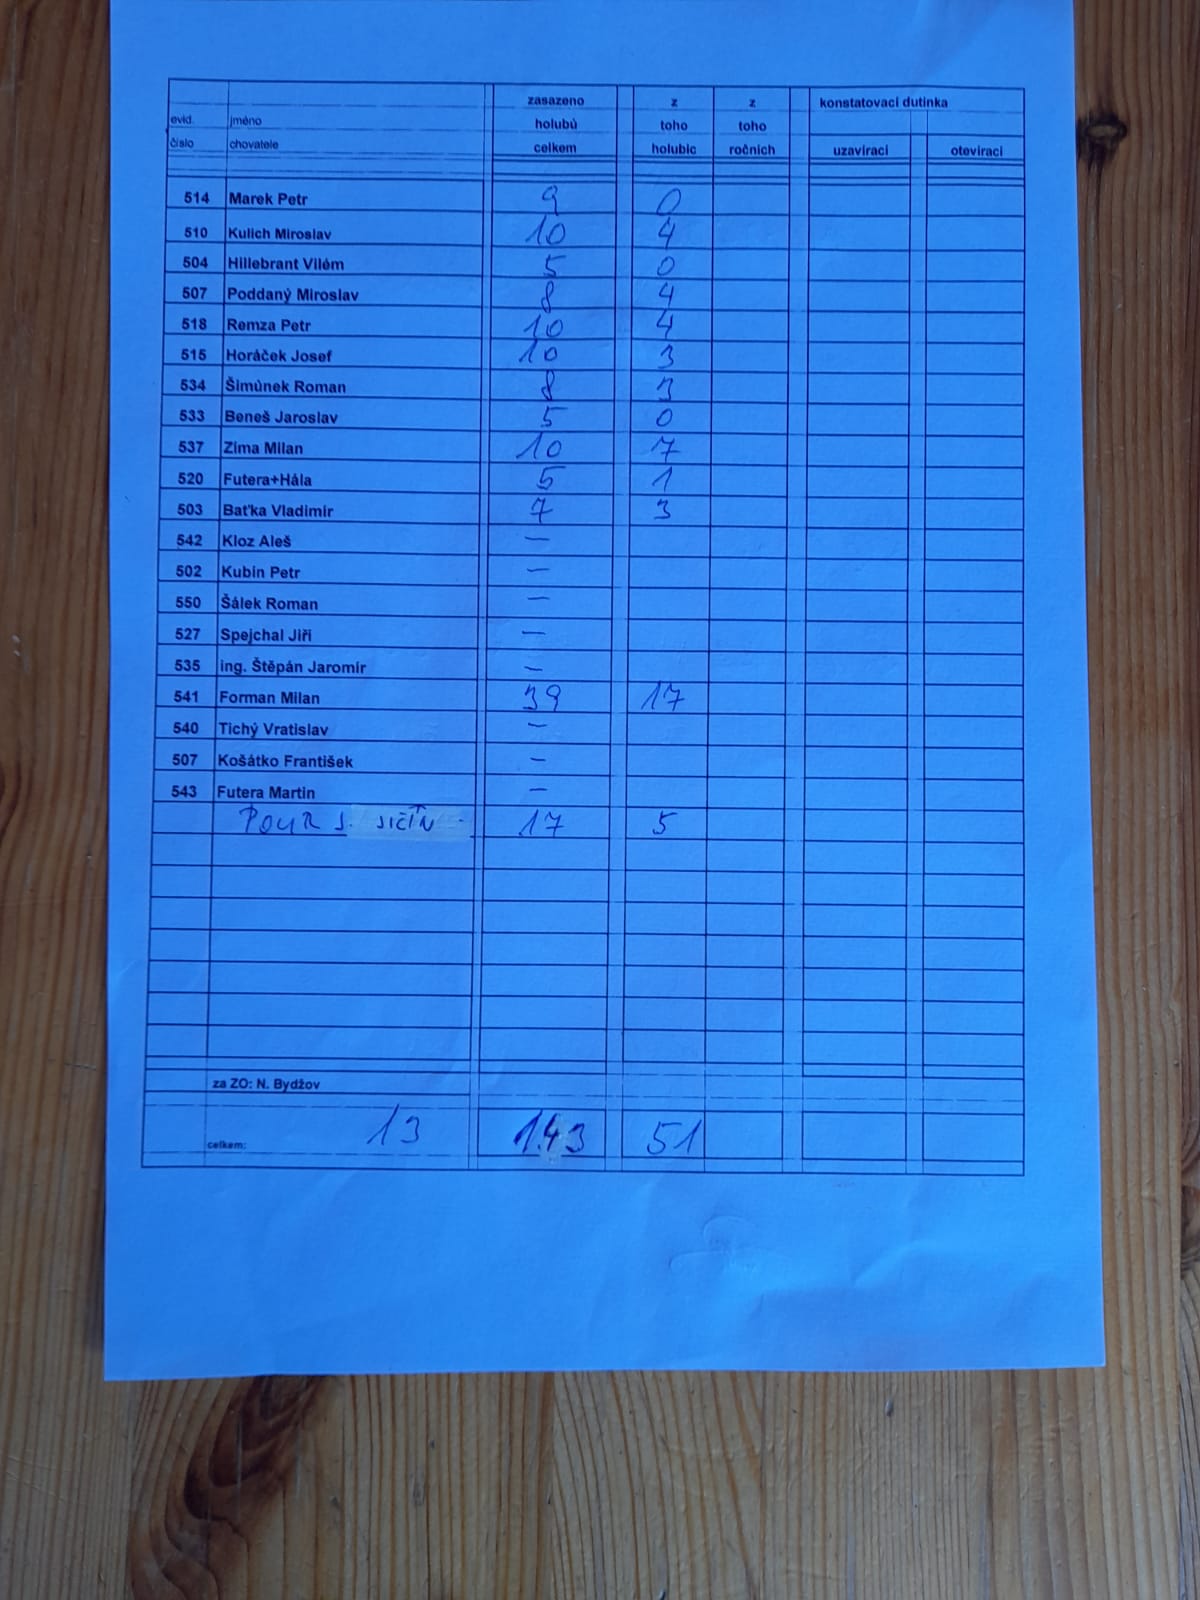 evid. číslo jméno chovatele zasazeno holubů celkem z toho holubic z toho ročních konstatovací dutinka uzavírací otevírací
514 Marek Petr 9 0
510 Kulich Miroslav 10 4
504 Hillebrant Vilém 5 0
507 Poddaný Miroslav 8 4
518 Remza Petr 10 4
515 Horáček Josef 10 3
534 Šimůnek Roman 8 3
533 Beneš Jaroslav 5 0
537 Zima Milan 10 7
520 Futera+Hála 5 1
503 Baťka Vladimír 7 3
542 Kloz Aleš -
502 Kubín Petr -
550 Šálek Roman -
527 Spejchal Jiří -
535 ing. Štěpán Jaromír -
541 Forman Milan 39 17
540 Tichý Vratislav -
507 Košátko František -
543 Futera Martin -
POUR J. JIČÍN - 17 5
za ZO: N. Bydžov
celkem: 13 143 51